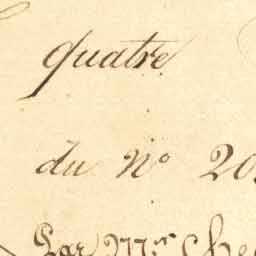 quatre
du Nº 20
Par Mr. Che